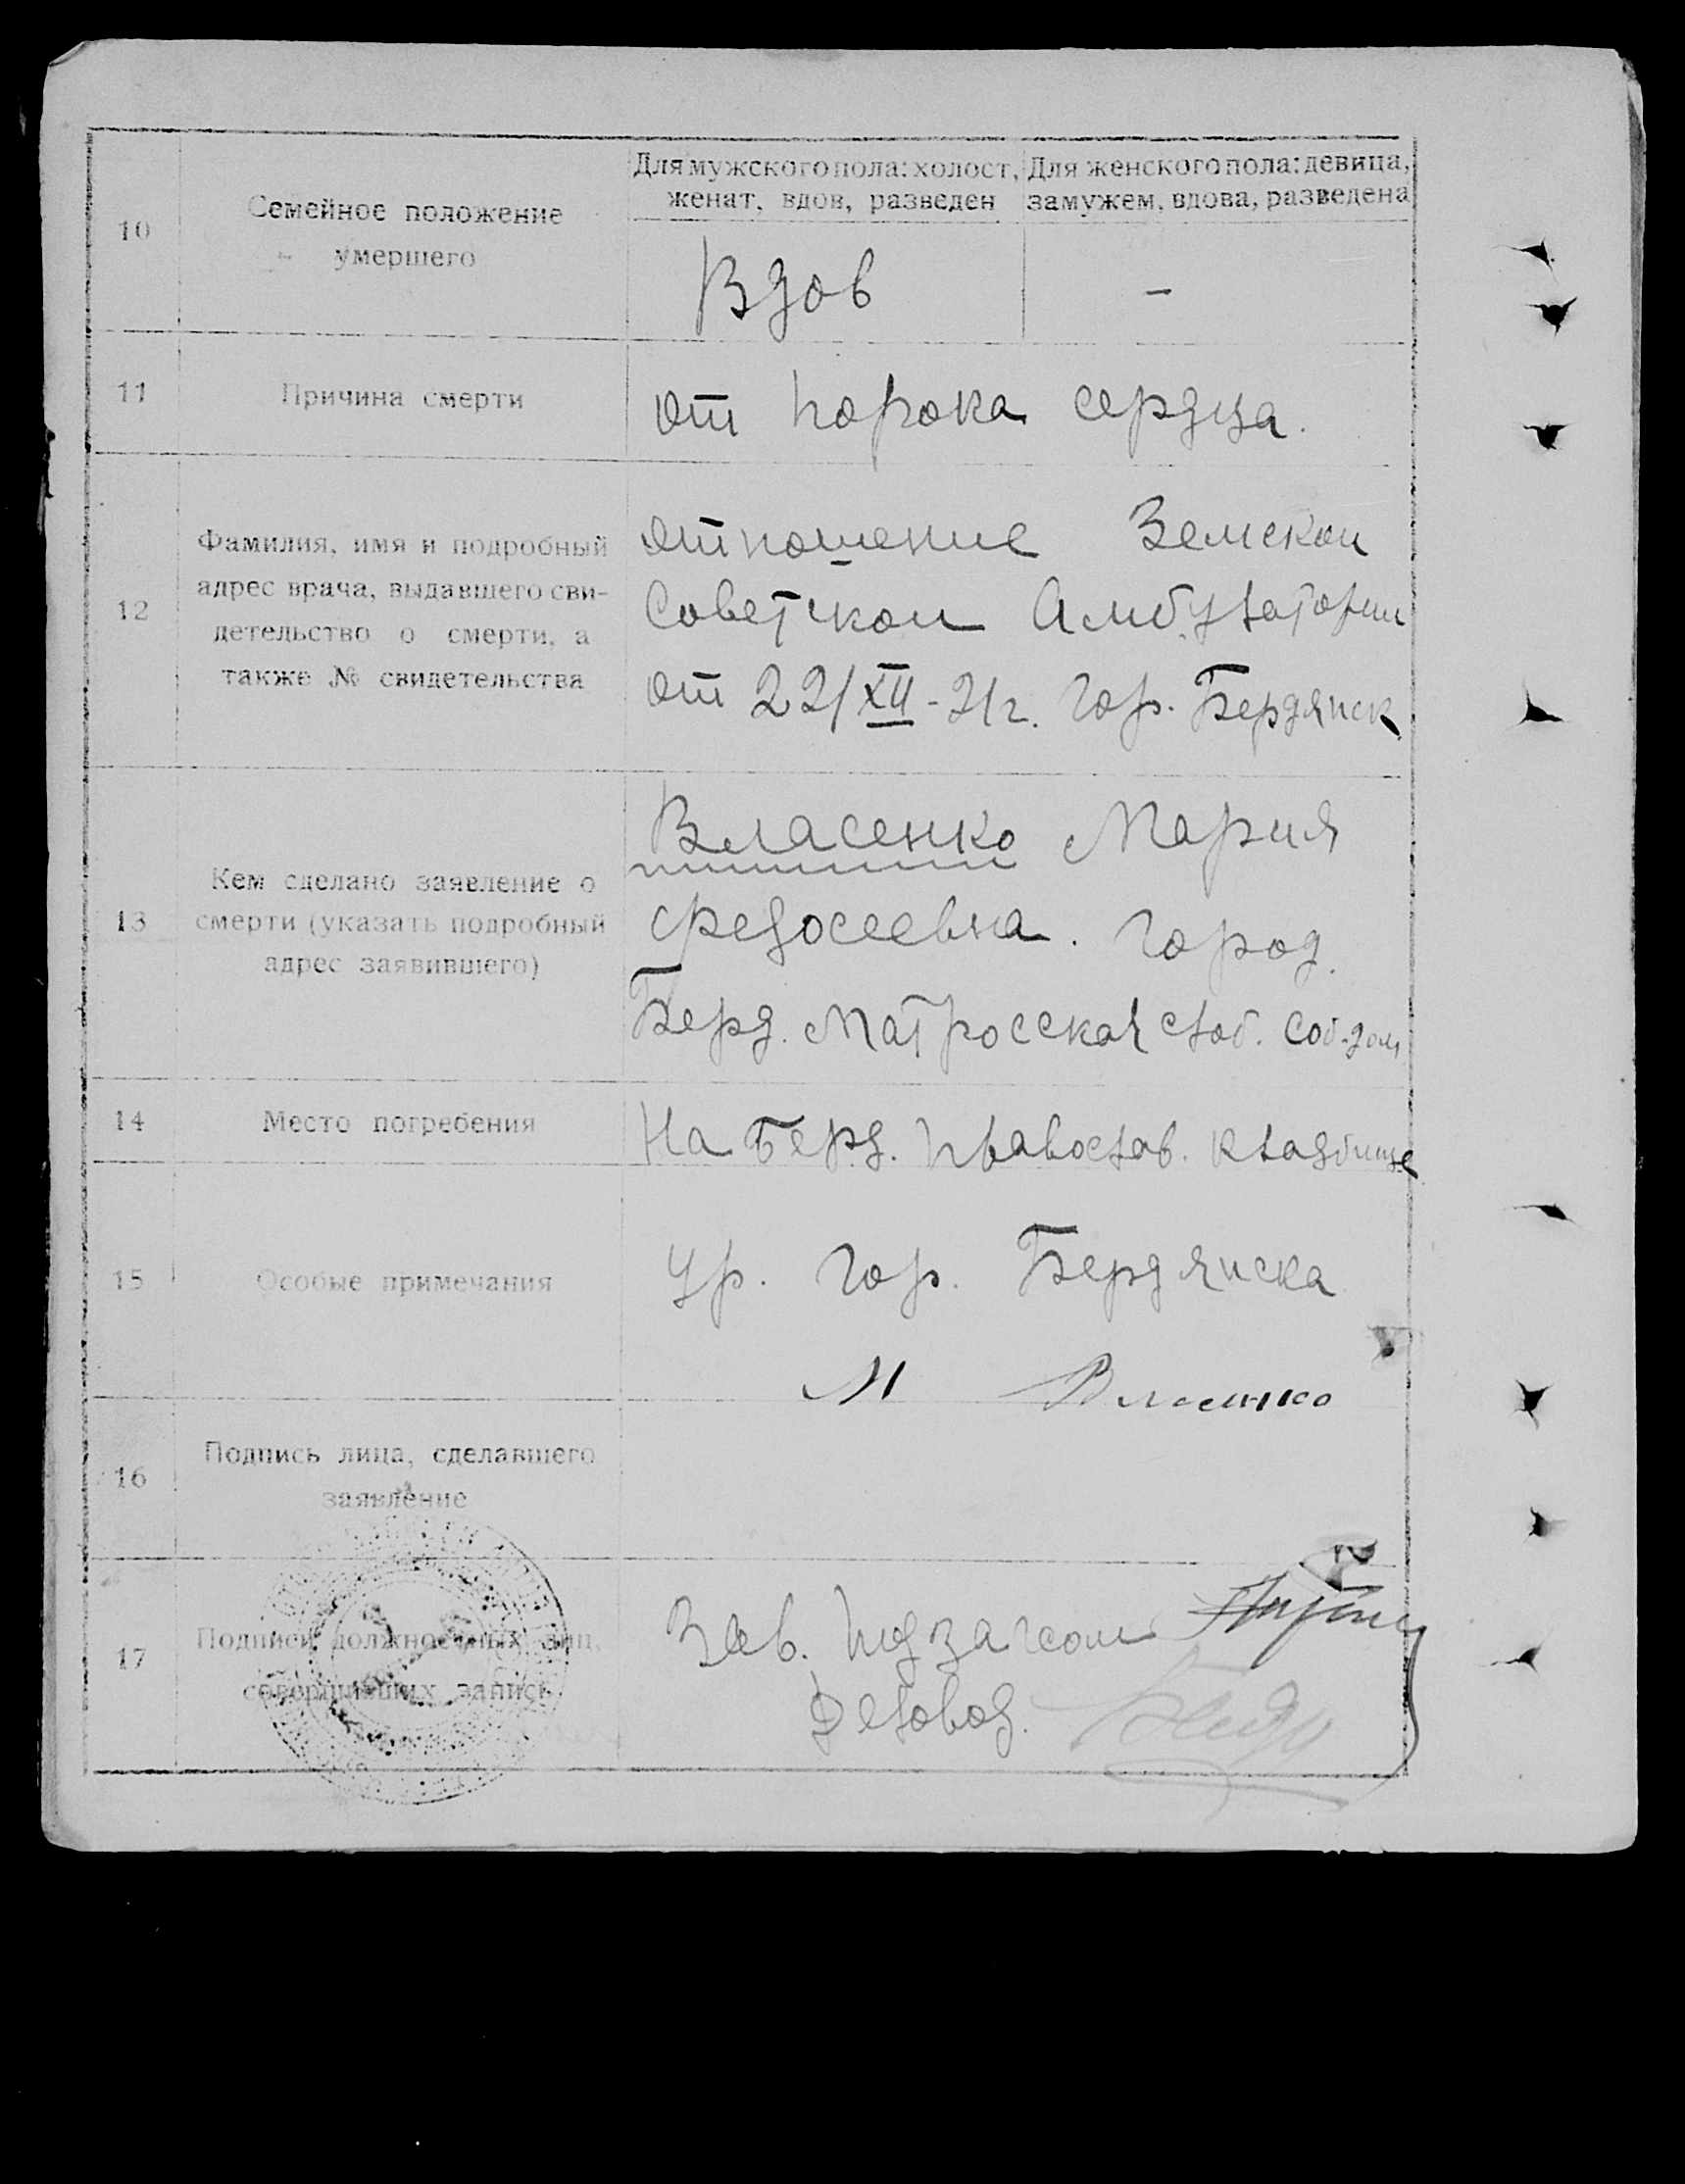 Для мужского пола: холост, женат, вдов, разведен
Для женского пола: девица, замужем, вдова, разведена
10
Семейное положение
умершего
Вдов
-
11
Причина смерти
от порока сердца.
12
Фамилия, имя и подробный
адрес врача, выдавшего сви-
детельство о смерти, а
также № свидетельства
отношение Земской
Советской Амбулатории
от 22/XII-21г. гор. Бердянск
13
Кем сделано заявление о
смерти (указать подробный
адрес заявившего)
Власенко Мария
Федосеевна. город.
Берд. Матросская слоб. соб. дом
14
Место погребения
На Берд. Православ. кладбище
15
Особые примечания
Ур. гор. Бердянска
М Власенко
16
Подпись лица, сделавшего
заявление
17
Подписи должностных лиц,
совершивших запись
Зав. подзагсом
Деловод.